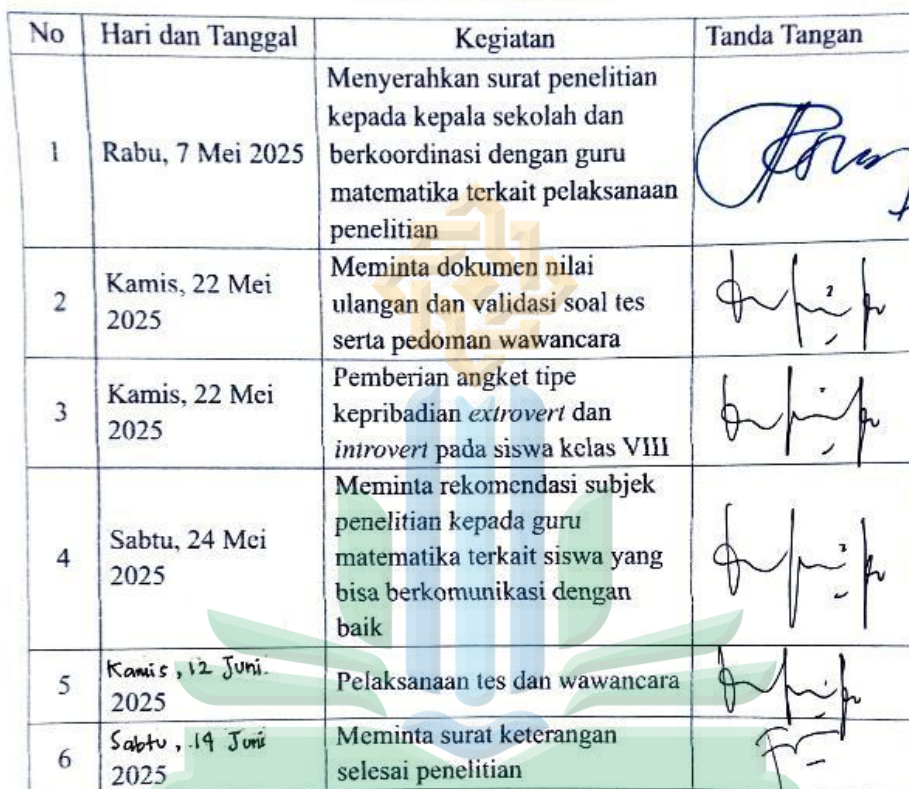 No Hari dan Tanggal Kegiatan Tanda Tangan
Menyerahkan surat penelitian
kepada kepala sekolah dan
1 Rabu, 7 Mei 2025 berkoordinasi dengan guru
matematika terkait pelaksanaan
penelitian
2 Kamis, 22 Mei
2025
Meminta dokumen nilai
ulangan dan validasi soal tes
serta pedoman wawancara
3 Kamis, 22 Mei
2025
Pemberian angket tipe
kepribadian extrovert dan
introvert pada siswa kelas VIII
4 Sabtu, 24 Mei
2025
Meminta rekomendasi subjek
penelitian kepada guru
matematika terkait siswa yang
bisa berkomunikasi dengan
baik
5 Kamis, 12 Juni.
2025
Pelaksanaan tes dan wawancara
6 Sabtu, 14 Juni
2025
Meminta surat keterangan
selesai penelitian